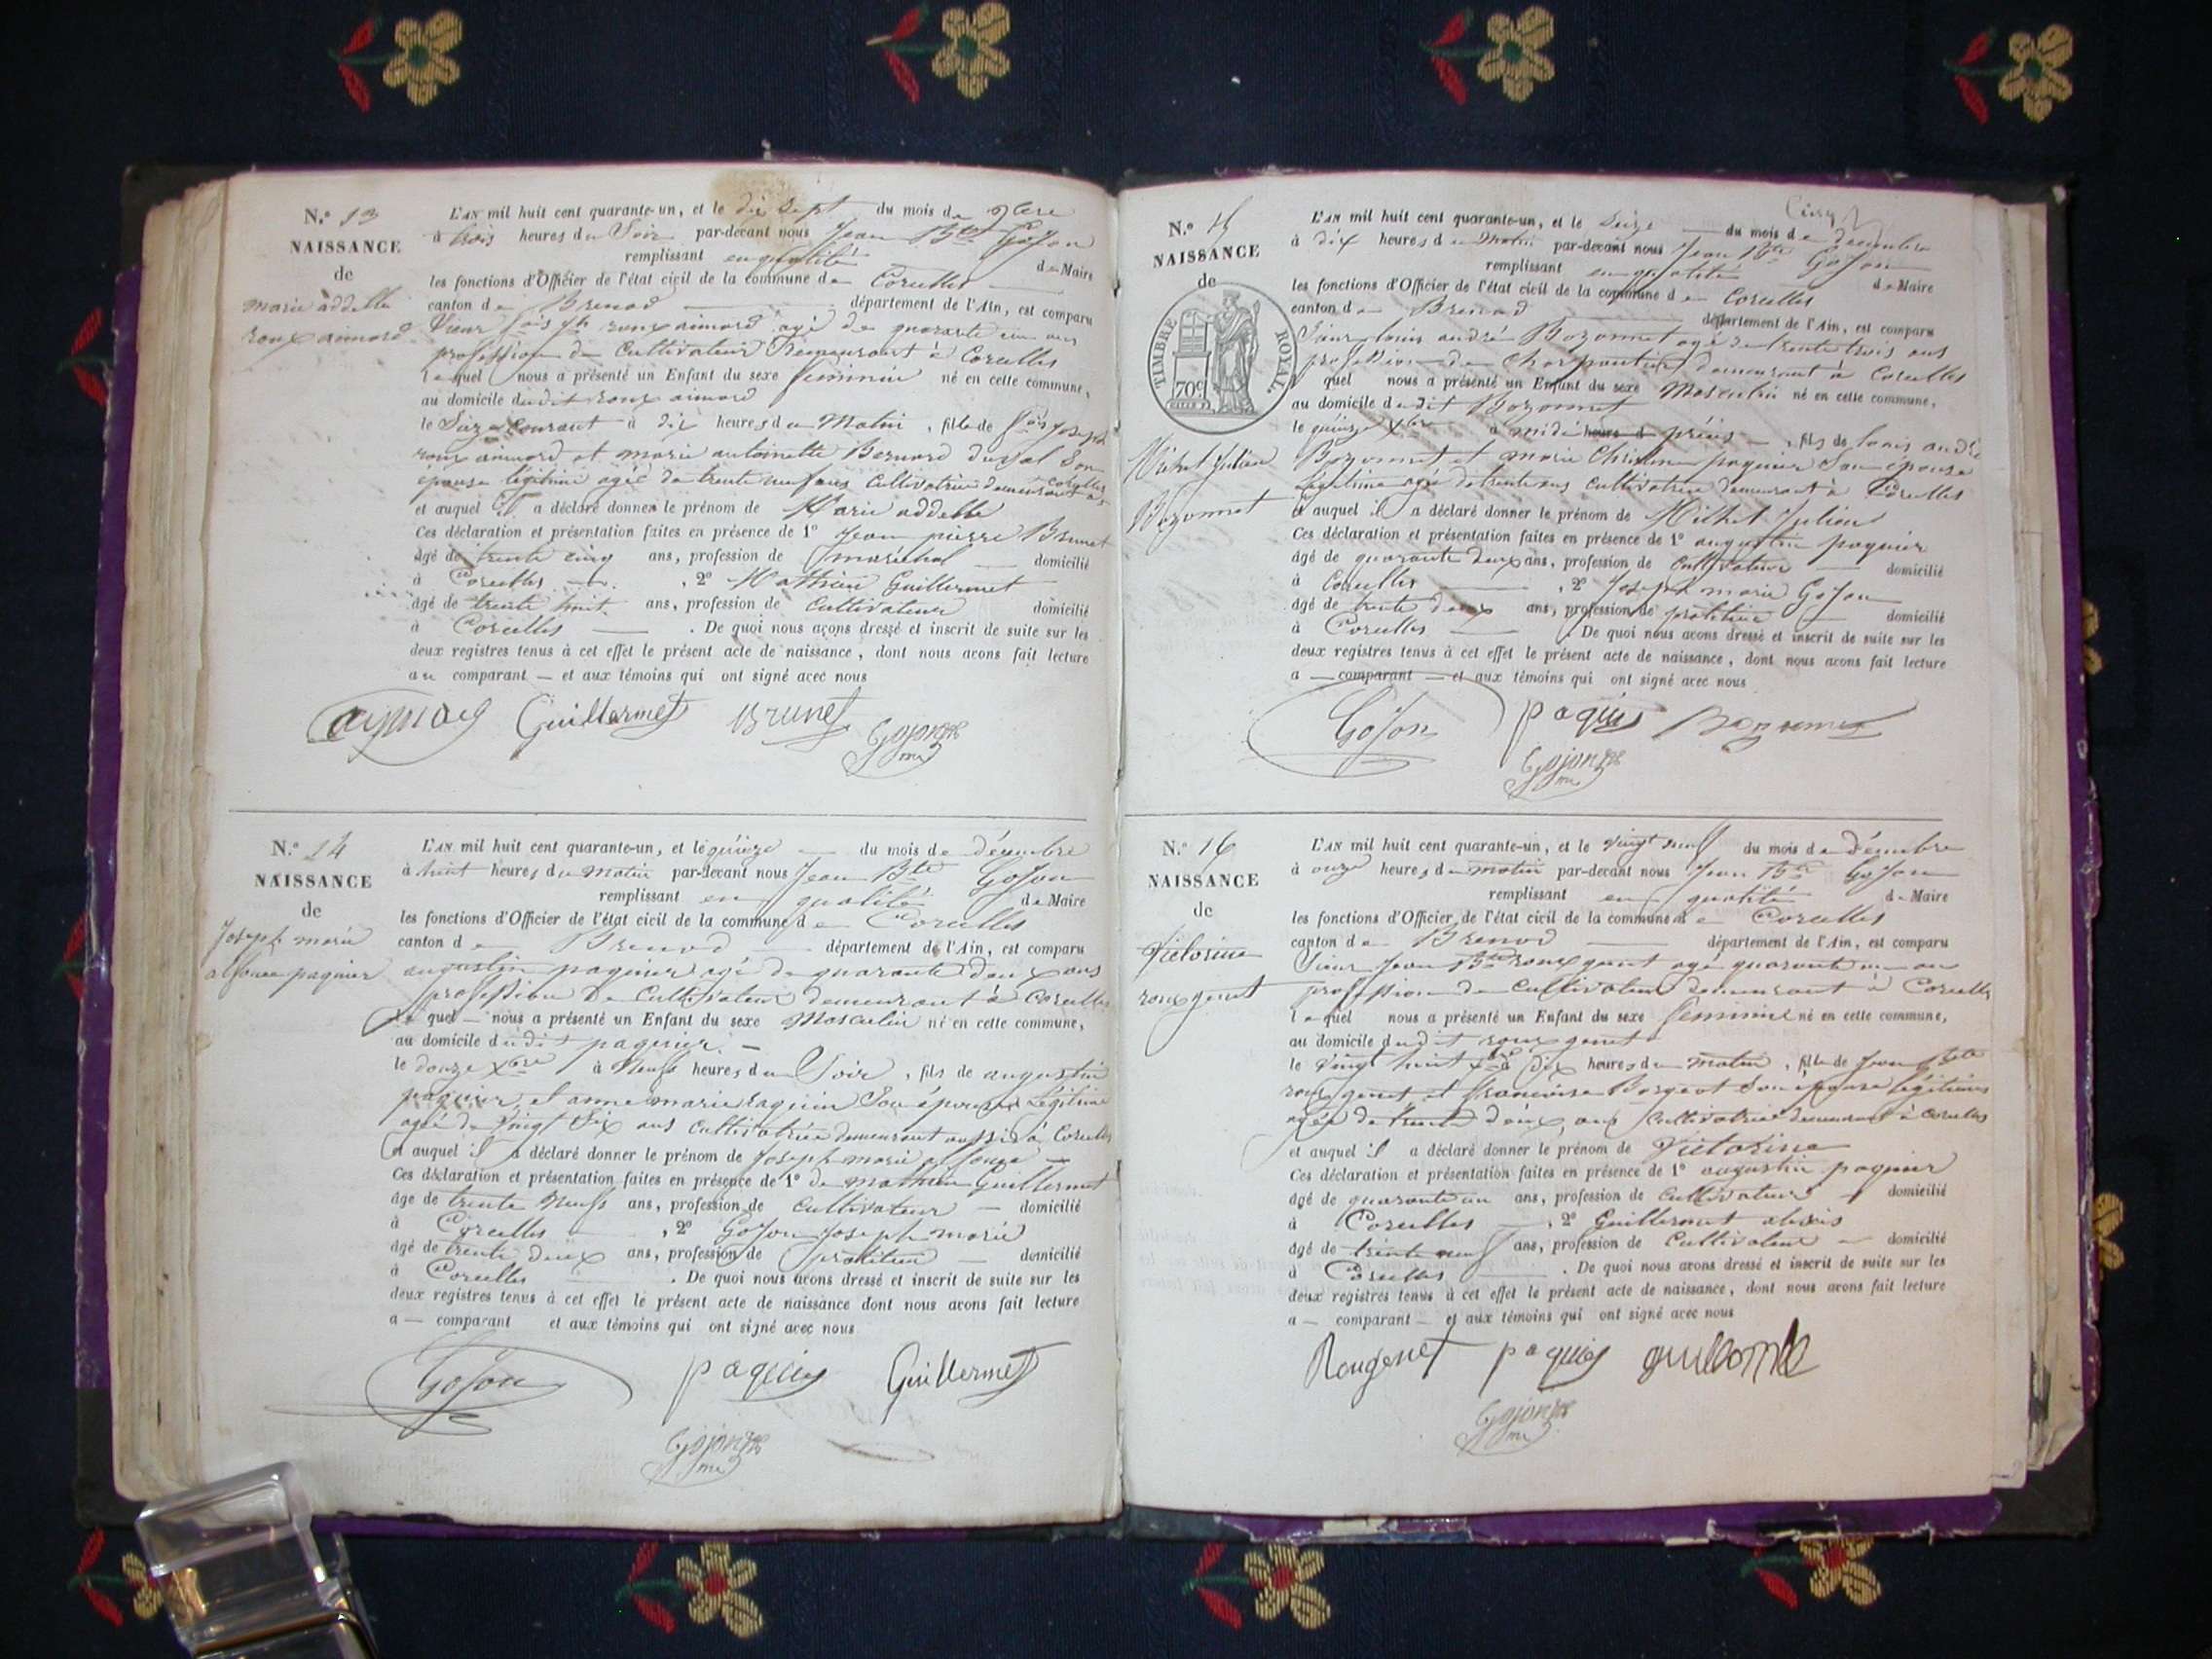 N.º 13
NAISSANCE
de
marie addelle
roux aimard
L'AN mil huit cent quarante-un, et le dix sept du mois de 9bre
à trois heures du Soir par-devant nous Jean Bte Gojon
remplissant en qualité de Maire
les fonctions d'Officier de l'état civil de la commune de Corcelles
canton de Brenod département de l'Ain, est comparu
Sieur fois Jh roux aimard agé de quarante cinq ans
profession de Cultivateur Demeurant à Corcelles
lequel nous a présenté un Enfant du sexe feminin né en cette commune,
au domicile dudit roux aimard
le Seize Courant à dix heures du Matin, fille de fois Joseph
roux aimard et marie antoinette Bernard duval Son
épouse légitime agée de trente neuf ans Cultivatrice demeurant à Corcelles
et auquel il a déclaré donner le prénom de Marie addelle
Ces déclaration et présentation faites en présence de 1º Jean pierre Brunet
âgé de trente cinq ans, profession de maréchal domicilié
à Corcelles, 2º Mathieu Guillermet
âgé de trente huit ans, profession de Cultivateur domicilié
à Corcelles. De quoi nous avons dressé et inscrit de suite sur les
deux registres tenus à cet effet le présent acte de naissance, dont nous avons fait lecture
au comparant et aux témoins qui ont signé avec nous
aymard Guillermet Brunet
Gojon
N.º 14
NAISSANCE
de
Joseph marie
alfonce paquier
L'AN mil huit cent quarante-un, et le quinze du mois de décembre
à huit heures du matin par-devant nous Jean Bte Gojon
remplissant en qualité de Maire
les fonctions d'Officier de l'état civil de la commune de Corcelles
canton de Brenod département de l'Ain, est comparu
augustin paquier agé de quarante deux ans
profession de Cultivateur demeurant à Corcelles
Le quel nous a présenté un Enfant du sexe Masculin né en cette commune,
au domicile dudit paquier
le douze Xbre à Neuf heures du Soir, fils de augustin
paquier et anne marie paquier Son épouse Légitime
agée de vingt Six ans Cultivatrice demeurant aussi à Corcelles
et auquel il a déclaré donner le prénom de Joseph marie alfonce
Ces déclaration et présentation faites en présence de 1º de mathieu Guillermet
âgé de trente Neuf ans, profession de Cultivateur domicilié
à Corcelles, 2º Gojon Joseph marie
âgé de trente deux ans, profession de domicilié
à Corcelles. De quoi nous avons dressé et inscrit de suite sur les
deux registres tenus à cet effet le présent acte de naissance dont nous avons fait lecture
a comparant et aux témoins qui ont signé avec nous
Gojon paquier Guillermet
Gojon
N.º 15
NAISSANCE
de
TIMBRE ROYAL.
70c
Michel Julien
Bozonnet
L'AN mil huit cent quarante-un, et le Seize du mois de décembre
à dix heures du Matin par-devant nous Jean Bte Gojon
remplissant en qualité de Maire
les fonctions d'Officier de l'état civil de la commune de Corcelles
canton de Brenod département de l'Ain, est comparu
Sieur louis andré Bozonnet agé de trente trois ans
profession de Charpentier demeurant à Corcelles
quel nous a présenté un Enfant du sexe Masculin né en cette commune,
au domicile dudit Bozonnet
le quinze Xbre à midi heure d précis, fils de louis andré
Bozonnet et marie Christine paquier Son épouse
Légitime agée de trente ans cultivatrice demeurant à Corcelles
et auquel il a déclaré donner le prénom de Michel Julien
Ces déclaration et présentation faites en présence de 1º augustin paquier
âgé de quarante deux ans, profession de Cultivateur domicilié
à Corcelles, 2º Joseph marie Gojon
âgé de trente deux ans, profession de domicilié
à Corcelles. De quoi nous avons dressé et inscrit de suite sur les
deux registres tenus à cet effet le présent acte de naissance, dont nous avons fait lecture
a comparant et aux témoins qui ont signé avec nous
Gojon paquier Bozonnet
Gojon
N.º 16
NAISSANCE
de
Victorine
roux genet
L'AN mil huit cent quarante-un, et le vingt neuf du mois de décembre
à onze heures du matin par-devant nous Jean Bte Gojon
remplissant en qualité de Maire
les fonctions d'Officier de l'état civil de la commune de Corcelles
canton de Brenod département de l'Ain, est comparu
Sieur Jean Bte roux genet agé quarante un an
profession de Cultivateur demeurant à Corcelles
lequel nous a présenté un Enfant du sexe feminine né en cette commune,
au domicile dudit roux genet
le vingt huit Xbre à Dix heures du matin, fille de Jean Bte
roux genet et françoise Borgeot Son épouse légitime
agée de trente deux ans Cultivatrice demeurant à Corcelles
et auquel il a déclaré donner le prénom de Victorine
Ces déclaration et présentation faites en présence de 1º augustin paquier
âgé de quarante un ans, profession de Cultivateur domicilié
à Corcelles, 2º Guillermet alexis
âgé de trente neuf ans, profession de Cultivateur domicilié
à Corcelles. De quoi nous avons dressé et inscrit de suite sur les
deux registres tenus à cet effet le présent acte de naissance, dont nous avons fait lecture
a comparant et aux témoins qui ont signé avec nous
Rougenet paquier
Gojon